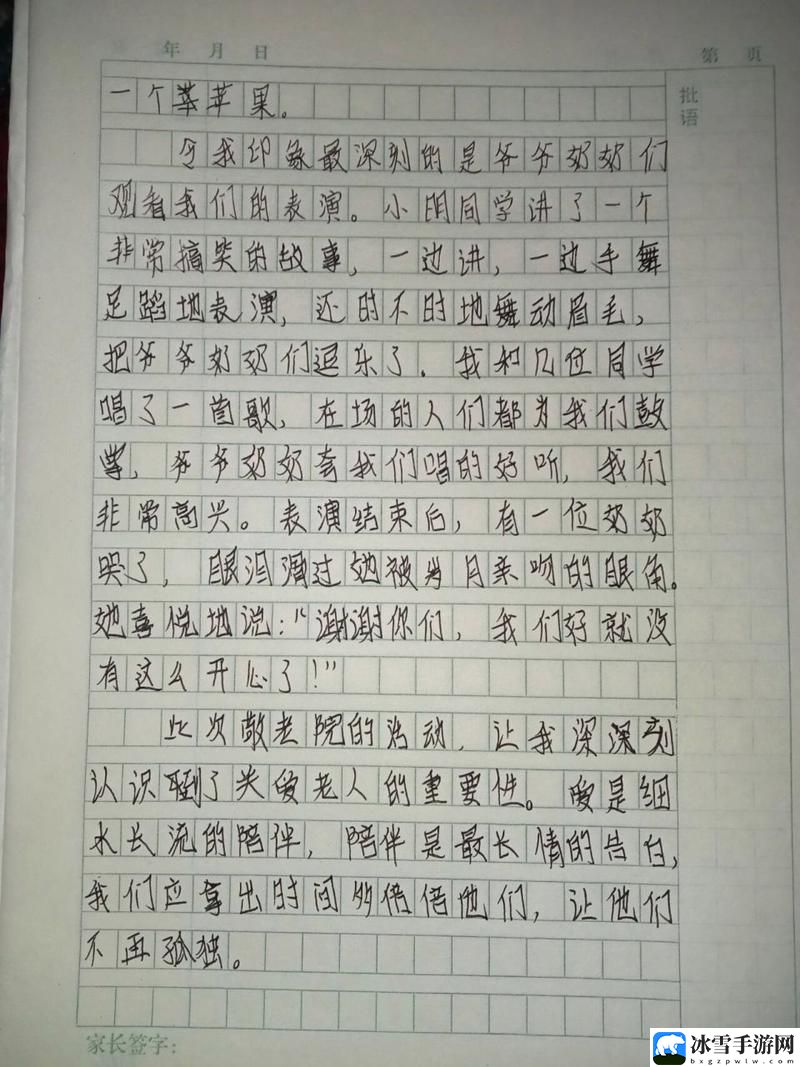 年 月 日 第 页
批语
一个苹苹果。
令我印象最深刻的是爷爷奶奶们
观看我们的表演。小明同学讲了一个
非常搞笑的故事，一边讲，一边手舞
足蹈地表演，还时不时地舞动眉毛，
把爷爷奶奶们逗乐了．我和几位同学
唱了一首歌，在场的人们都为我们鼓
掌，爷爷奶奶夸我们唱的好听，我们
非常高兴。表演结束后，有一位奶奶
哭了，眼泪滑过她被岁月亲吻的眼角。
她喜悦地说：“谢谢你们，我们好就没
有这么开心了！”
此次敬老院的活动，让我深深刻
认识到了关爱老人的重要性。爱是细
水长流的陪伴，陪伴是最长情的告白，
我们应拿出时间多倍倍他们，让他们
不再孤独。
家长签字：
冰雪手游网
bxgzpwlw.com